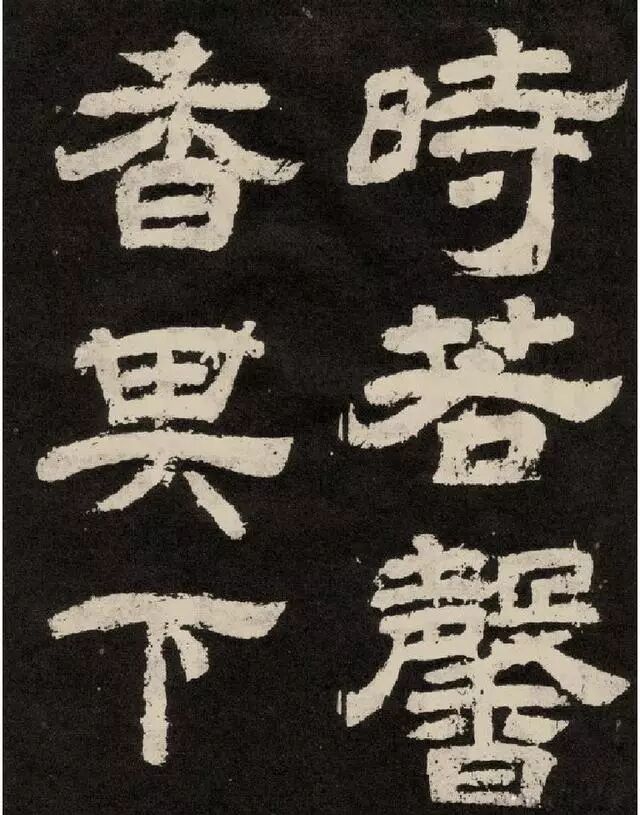 時若馨
香其下